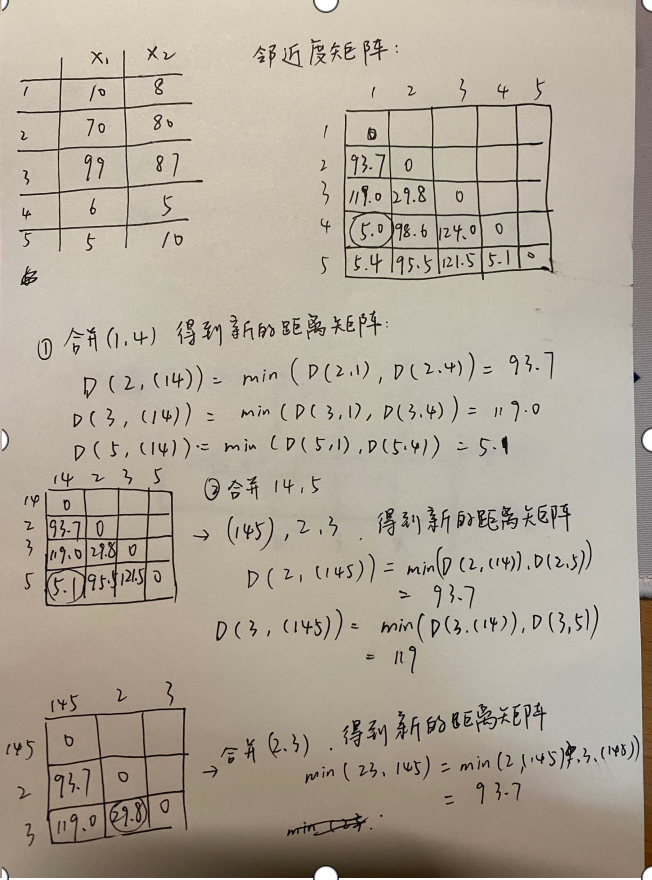 x₁ x₂
1 10 8
2 70 80
3 99 87
4 6 5
5 5 10
邻近度矩阵:
1 2 3 4 5
1 0
2 93.7 0
3 119.0 29.8 0
4 5.0 98.6 124.0 0
5 5.4 95.5 121.5 5.1 0
① 合并(1,4) 得到新的距离矩阵:
D(2,(14)) = min(D(2,1), D(2.4)) = 93.7
D(3,(14)) = min(D(3,1), D(3.4)) = 119.0
D(5,(14)) = min(D(5,1), D(5,4)) = 5.1
14 2 3 5
14 0
2 93.7 0
3 119.0 29.8 0
5 5.1 95.5 121.5 0
② 合并 14,5
→ (145), 2, 3. 得到新的距离矩阵
D(2,(145)) = min(D(2,(14)), D(2,5))
= 93.7
D(3,(145)) = min(D(3.(14)), D(3,5))
= 119
145 2 3
145 0
2 93.7 0
3 119.0 29.8 0
→ 合并(2.3). 得到新的距离矩阵
min(23,145) = min(2,(145), 3,(145))
= 93.7